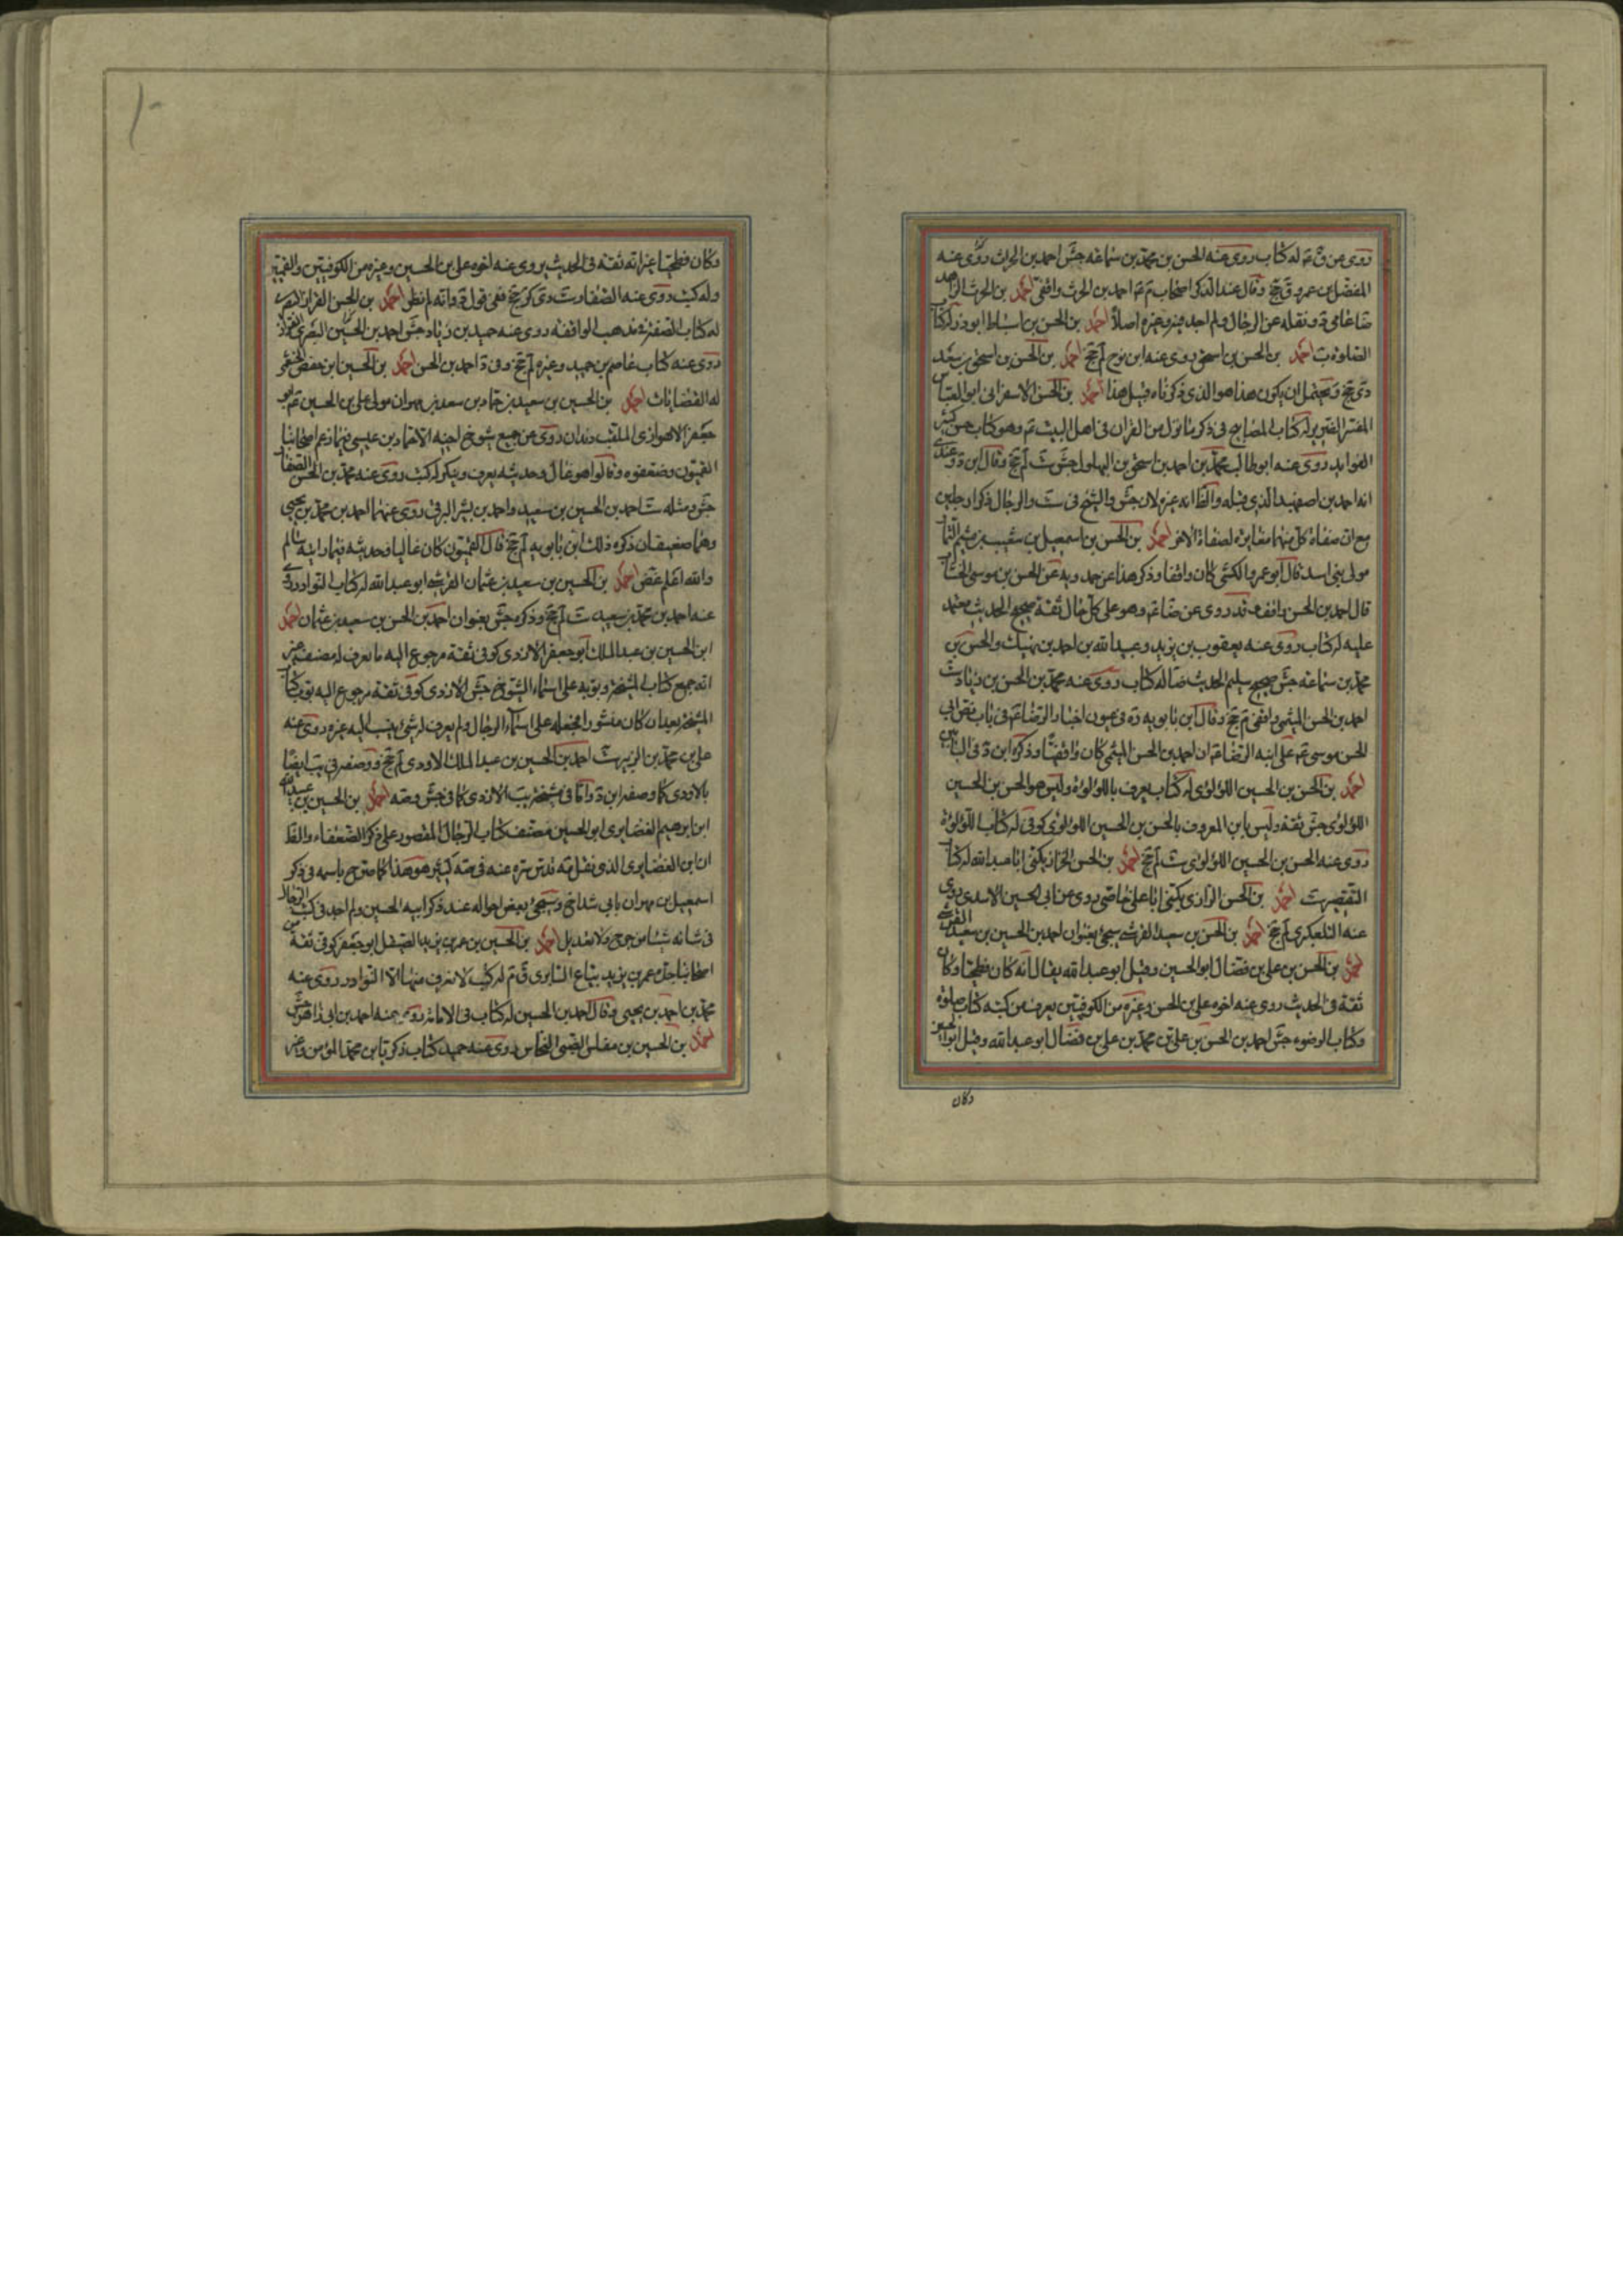 روى عن ق م له كتاب روى عنه الحسن بن محمد بن سماعة جش احمد بن الحرث روى عنه
المفضل بن عمرو ق جخ وقال عند الذكر اصحاب م احمد بن الحرث واقفى احمد بن الحرث الزاهد
ولم اجد اصلا احمد بن الحسن بن اسباط ابو ذر له كتاب
الصلوة ب احمد بن الحسن بن اسحق روى عنه ابن نوح لم جخ احمد بن الحسن بن اسحق بن سعد
دى جخ ويحتمل ان يكون هذا هو الذى ذكرناه قبل هذا احمد بن الحسن الاسفراينى ابو العباس
المفسر الضرير له كتاب المصابيح فى ذكر ما نزل من القران فى اهل البيت ع وهو كتاب حسن كثير
الفوايد روى عنه ابو طالب محمد بن احمد بن اسحق بن البهلول جش ست لم جخ وقال ابن د وعندى
انه احمد بن اصفهبد الذي قبله والظ انه غيره لان جش والشيخ فى ست والرجال ذكرا رجلين
مع ان صفاة كل منهما مغايرة لصفاة الاخر احمد بن الحسن بن اسمعيل بن شعيب بن ميثم التمار
مولى بنى اسد قال ابو عمرو الكشى كان واقفا وذكر هذا عن حمدويه عن الحسن بن موسى الخشاب
قال احمد بن الحسن واقف قد روى عن ضا ع وهو على كل حال ثقة صحيح الحديث معتمد
عليه له كتاب روى عنه يعقوب بن يزيد وعبيد الله بن احمد بن نهيك والحسن بن
محمد بن سماعة جش صحيح سليم الحديث له كتاب روى عنه محمد بن الحسن بن زياد ست
احمد بن الحسن الميثمى واقفى م جخ وقال ابن بابويه ره فى عيون اخبار الرضا ع فى باب نص ابى
الحسن موسى ع على ابنه الرضا ع ان احمد بن الحسن الميثمى كان واقفيا وذكره ابن د فى البابين
احمد بن الحسن بن الحسين اللؤلؤى له كتاب يعرف باللؤلؤة وليس هو الحسن بن الحسين
اللؤلؤى جش ثقة وليس بابن المعروف بالحسن بن الحسين اللؤلؤى كوفى له كتاب اللؤلؤة
روى عنه الحسن بن الحسين اللؤلؤى ست لم جخ احمد بن الحسن الخزاز يكنى ابا عبد الله له كتاب
التفسير ست احمد بن الحسن الرازى يكنى ابا على خاصى روى عن ابى الحسين الاسدى روى
عنه التلعكبرى لم جخ احمد بن الحسن بن سعيد القرشى سيجئ بعنوان احمد بن الحسين بن سعيد القرشى
احمد بن الحسن بن على بن فضال ابو الحسين وقيل ابو عبد الله يقال انه كان فطحيا وكان
ثقة فى الحديث روى عنه اخوه على بن الحسن وغيره من الكوفيين يعرف من كتبه كتاب صلوة
وكتاب الوضوء جش احمد بن الحسن بن على بن محمد بن على بن فضال ابو عبد الله وقيل ابو الحسين
وكان
وكان فطحيا غير انه ثقة فى الحديث روى عنه اخوه على بن الحسين وغيره من الكوفيين والقميين
وله كتب روى عنه الصفار ست دى كر جخ ففى قول د وانه لم نظر احمد بن الحسن القزاز البصرى
له كتاب الصفة فى مذهب الواقفة روى عنه حميد بن زياد جش احمد بن الحسين البصرى القزاز
روى عنه كتاب عاصم بن حميد وغيره لم جخ وفى د احمد بن الحسن احمد بن الحسين ابن
له احمد بن الحسين بن سعيد بن حماد بن سعيد بن مهران مولى على بن الحسين ع ابو
جعفر الاهوازى الملقب دندان روى عن جميع شيوخ ابيه الا حماد بن عيسى فيما زعم اصحابنا
القميون وضعفوه وقالوا هو غال وحديثه يعرف وينكر له كتب روى عنه محمد بن الحسن الصفار
جش ومثله ست احمد بن الحسين بن سعيد واحمد بن بشر البرقى روى عنهما احمد بن محمد بن يحيى
وهما ضعيفان ذكره ذلك ابن بابويه لم جخ قال القميون كان غاليا وحديثه فيما رايته سالم
والله اعلم غض احمد بن الحسين بن سعيد بن عثمان القرشى ابو عبد الله له كتاب النوادر روى
عنه احمد بن محمد بن سعيد ست لم جخ وذكره جش بعنوان احمد بن الحسن بن سعيد بن عثمان احمد
ابن الحسين بن عبد الملك ابو جعفر الازدى كوفى ثقة مرجوع اليه ما يعرف له مصنف غير
انه جمع كتاب المشيخة وبوبه على اسماء الشيوخ جش الازدى كوفى ثقة مرجوع اليه بوب كتاب
المشيخة بعد ان كان منثورا فجعله على اسماء الرجال ولم يعرف له شئ ينسب اليه غيره روى عنه
على بن محمد بن الزبير ست احمد بن الحسين بن عبد الملك الاودى لم جخ ووصفه فى يب ايضا
بالاودى كما وصفه ابن د واما فى مشيخة يب الازدى كما فى جش وصه احمد بن الحسين بن عبيد الله
ابن ابرهيم الغضايرى ابو الحسين مصنف كتاب الرجال المقصور على ذكر الضعفاء والظ
ان ابن الغضايرى الذى نقل منه قدس سره عنه فى صه كثيرا هو هذا كما صرح باسمه فى ذكر
اسمعيل بن مهران وسيجئ بعض احواله عند ذكر ابيه الحسين ولم اجد فى كتب الرجال
فى شانه شيئا من جرح ولا تعديل احمد بن الحسين بن عمر بن يزيد الصيقل ابو جعفر كوفى ثقة من
اصحابنا جده عمر بن يزيد بياع السابرى ق م له كتب لا نعرف منها الا النوادر روى عنه
محمد بن احمد بن يحيى وقال احمد بن الحسين له كتاب فى الامامة روى عنه احمد بن ابى زاهر جش
احمد بن الحسين بن مفلس الضبى النخاس روى عنه حميد كتاب زكريا بن محمد المؤمن وغير